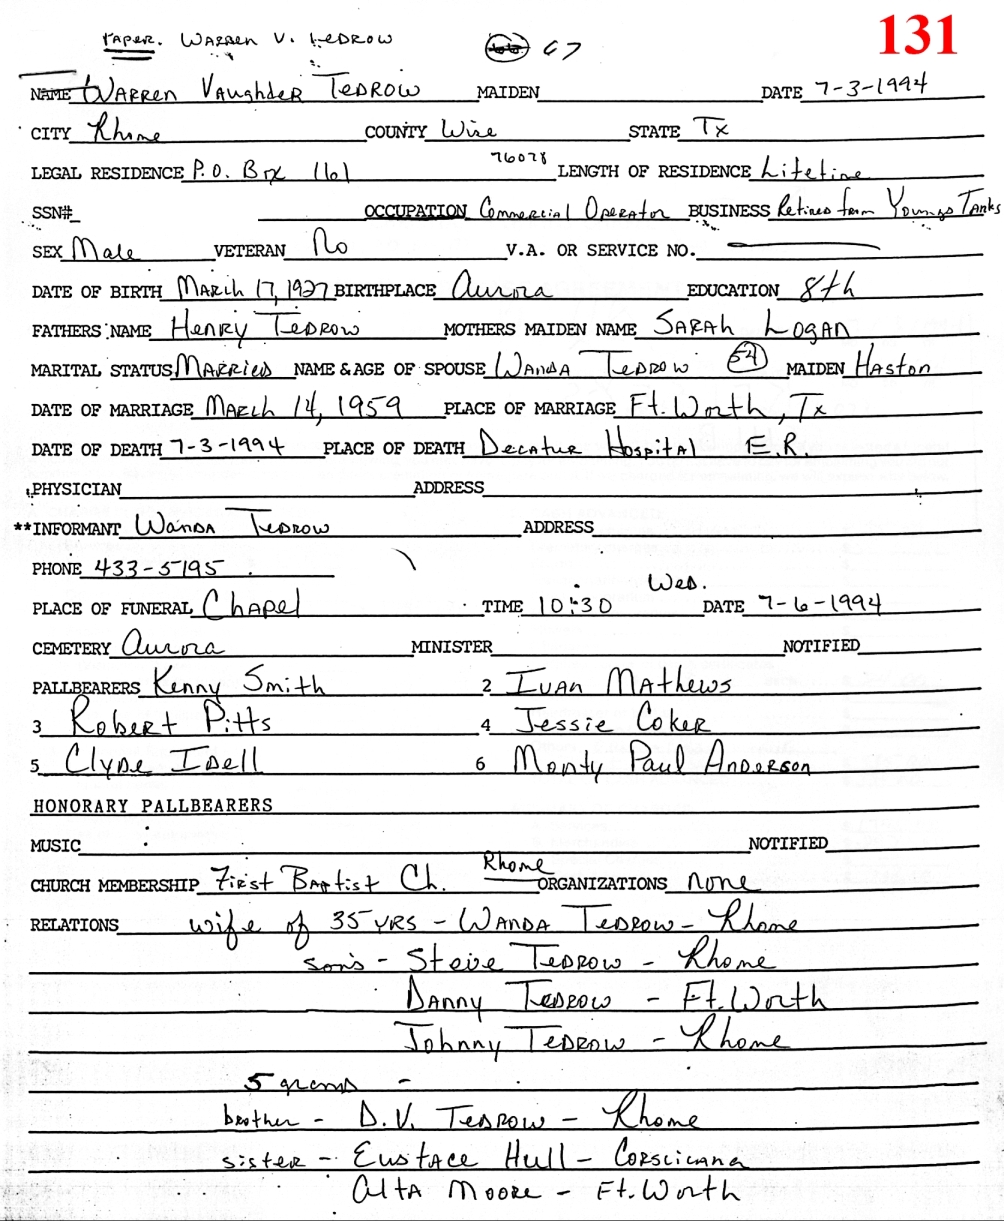 131
PAPER. WARREN V. TEDROW 67
NAME Warren Vaughder Tedrow MAIDEN DATE 7-3-1994
CITY Rhome COUNTY Wise STATE Tx
LEGAL RESIDENCE P.O. Box 161 76078 LENGTH OF RESIDENCE Lifetime
SSN# OCCUPATION Commercial Operator BUSINESS Retired from Youngs Tanks
SEX Male VETERAN No V.A. OR SERVICE NO.
DATE OF BIRTH March 17, 1927 BIRTHPLACE Aurora EDUCATION 8th
FATHERS NAME Henry Tedrow MOTHERS MAIDEN NAME Sarah Logan
MARITAL STATUS Married NAME & AGE OF SPOUSE Wanda Tedrow 54 MAIDEN Haston
DATE OF MARRIAGE March 14, 1959 PLACE OF MARRIAGE Ft. Worth, Tx
DATE OF DEATH 7-3-1994 PLACE OF DEATH Decatur Hospital E.R.
PHYSICIAN ADDRESS
**INFORMANT Wanda Tedrow ADDRESS
PHONE 433-5195
PLACE OF FUNERAL Chapel TIME 10:30 Wed. DATE 7-6-1994
CEMETERY Aurora MINISTER NOTIFIED
PALLBEARERS Kenny Smith 2 Ivan Mathews
3 Robert Pitts 4 Jessie Coker
5 Clyde Idell 6 Monty Paul Anderson
HONORARY PALLBEARERS
MUSIC NOTIFIED
CHURCH MEMBERSHIP First Baptist Ch. Rhome ORGANIZATIONS none
RELATIONS wife of 35 yrs - Wanda Tedrow - Rhome
sons - Steve Tedrow - Rhome
Danny Tedrow - Ft. Worth
Johnny Tedrow - Rhome
5 grands -
brother - D.V. Tedrow - Rhome
sister - Eustace Hull - Corscicana
Alta Moore - Ft. Worth